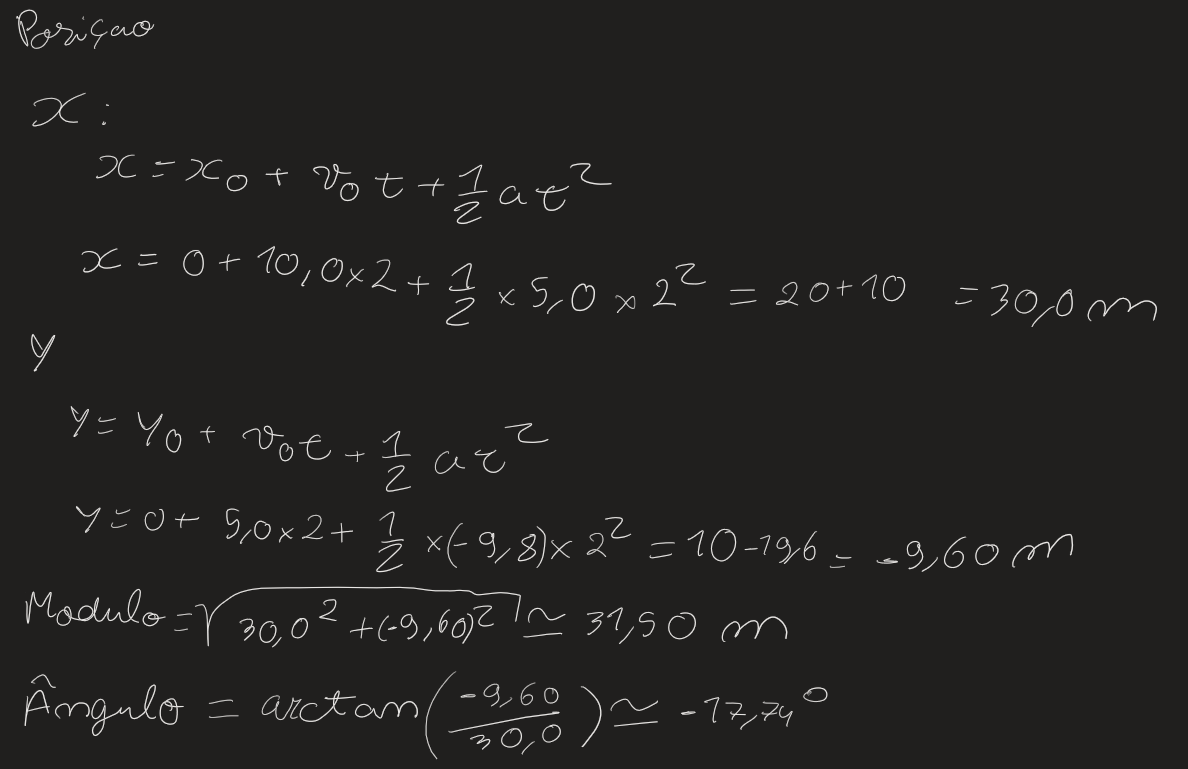 Posiçao
x:
x = x₀ + v₀t + 1/2 at²
x = 0 + 10,0×2 + 1/2 × 5,0 × 2² = 20+10 = 30,0 m
y
y = y₀ + v₀t + 1/2 at²
y = 0 + 5,0×2 + 1/2 ×(-9,8)× 2² = 10-19,6 = -9,60 m
Modulo = √(30,0² + (-9,60)²) ≃ 31,50 m
Ângulo = arctan(-9,60/30,0) ≃ -17,74°